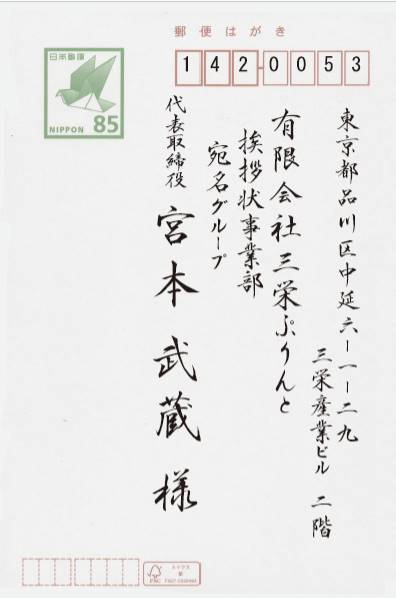 郵便はがき
142-0053
日本郵便
NIPPON 85
東京都品川区中延六ー一ー二九
三栄産業ビル 二階
有限会社三栄ぷりんと
挨拶状事業部
宛名グループ
代表取締役
宮本武蔵様
ミックス
紙
FSC